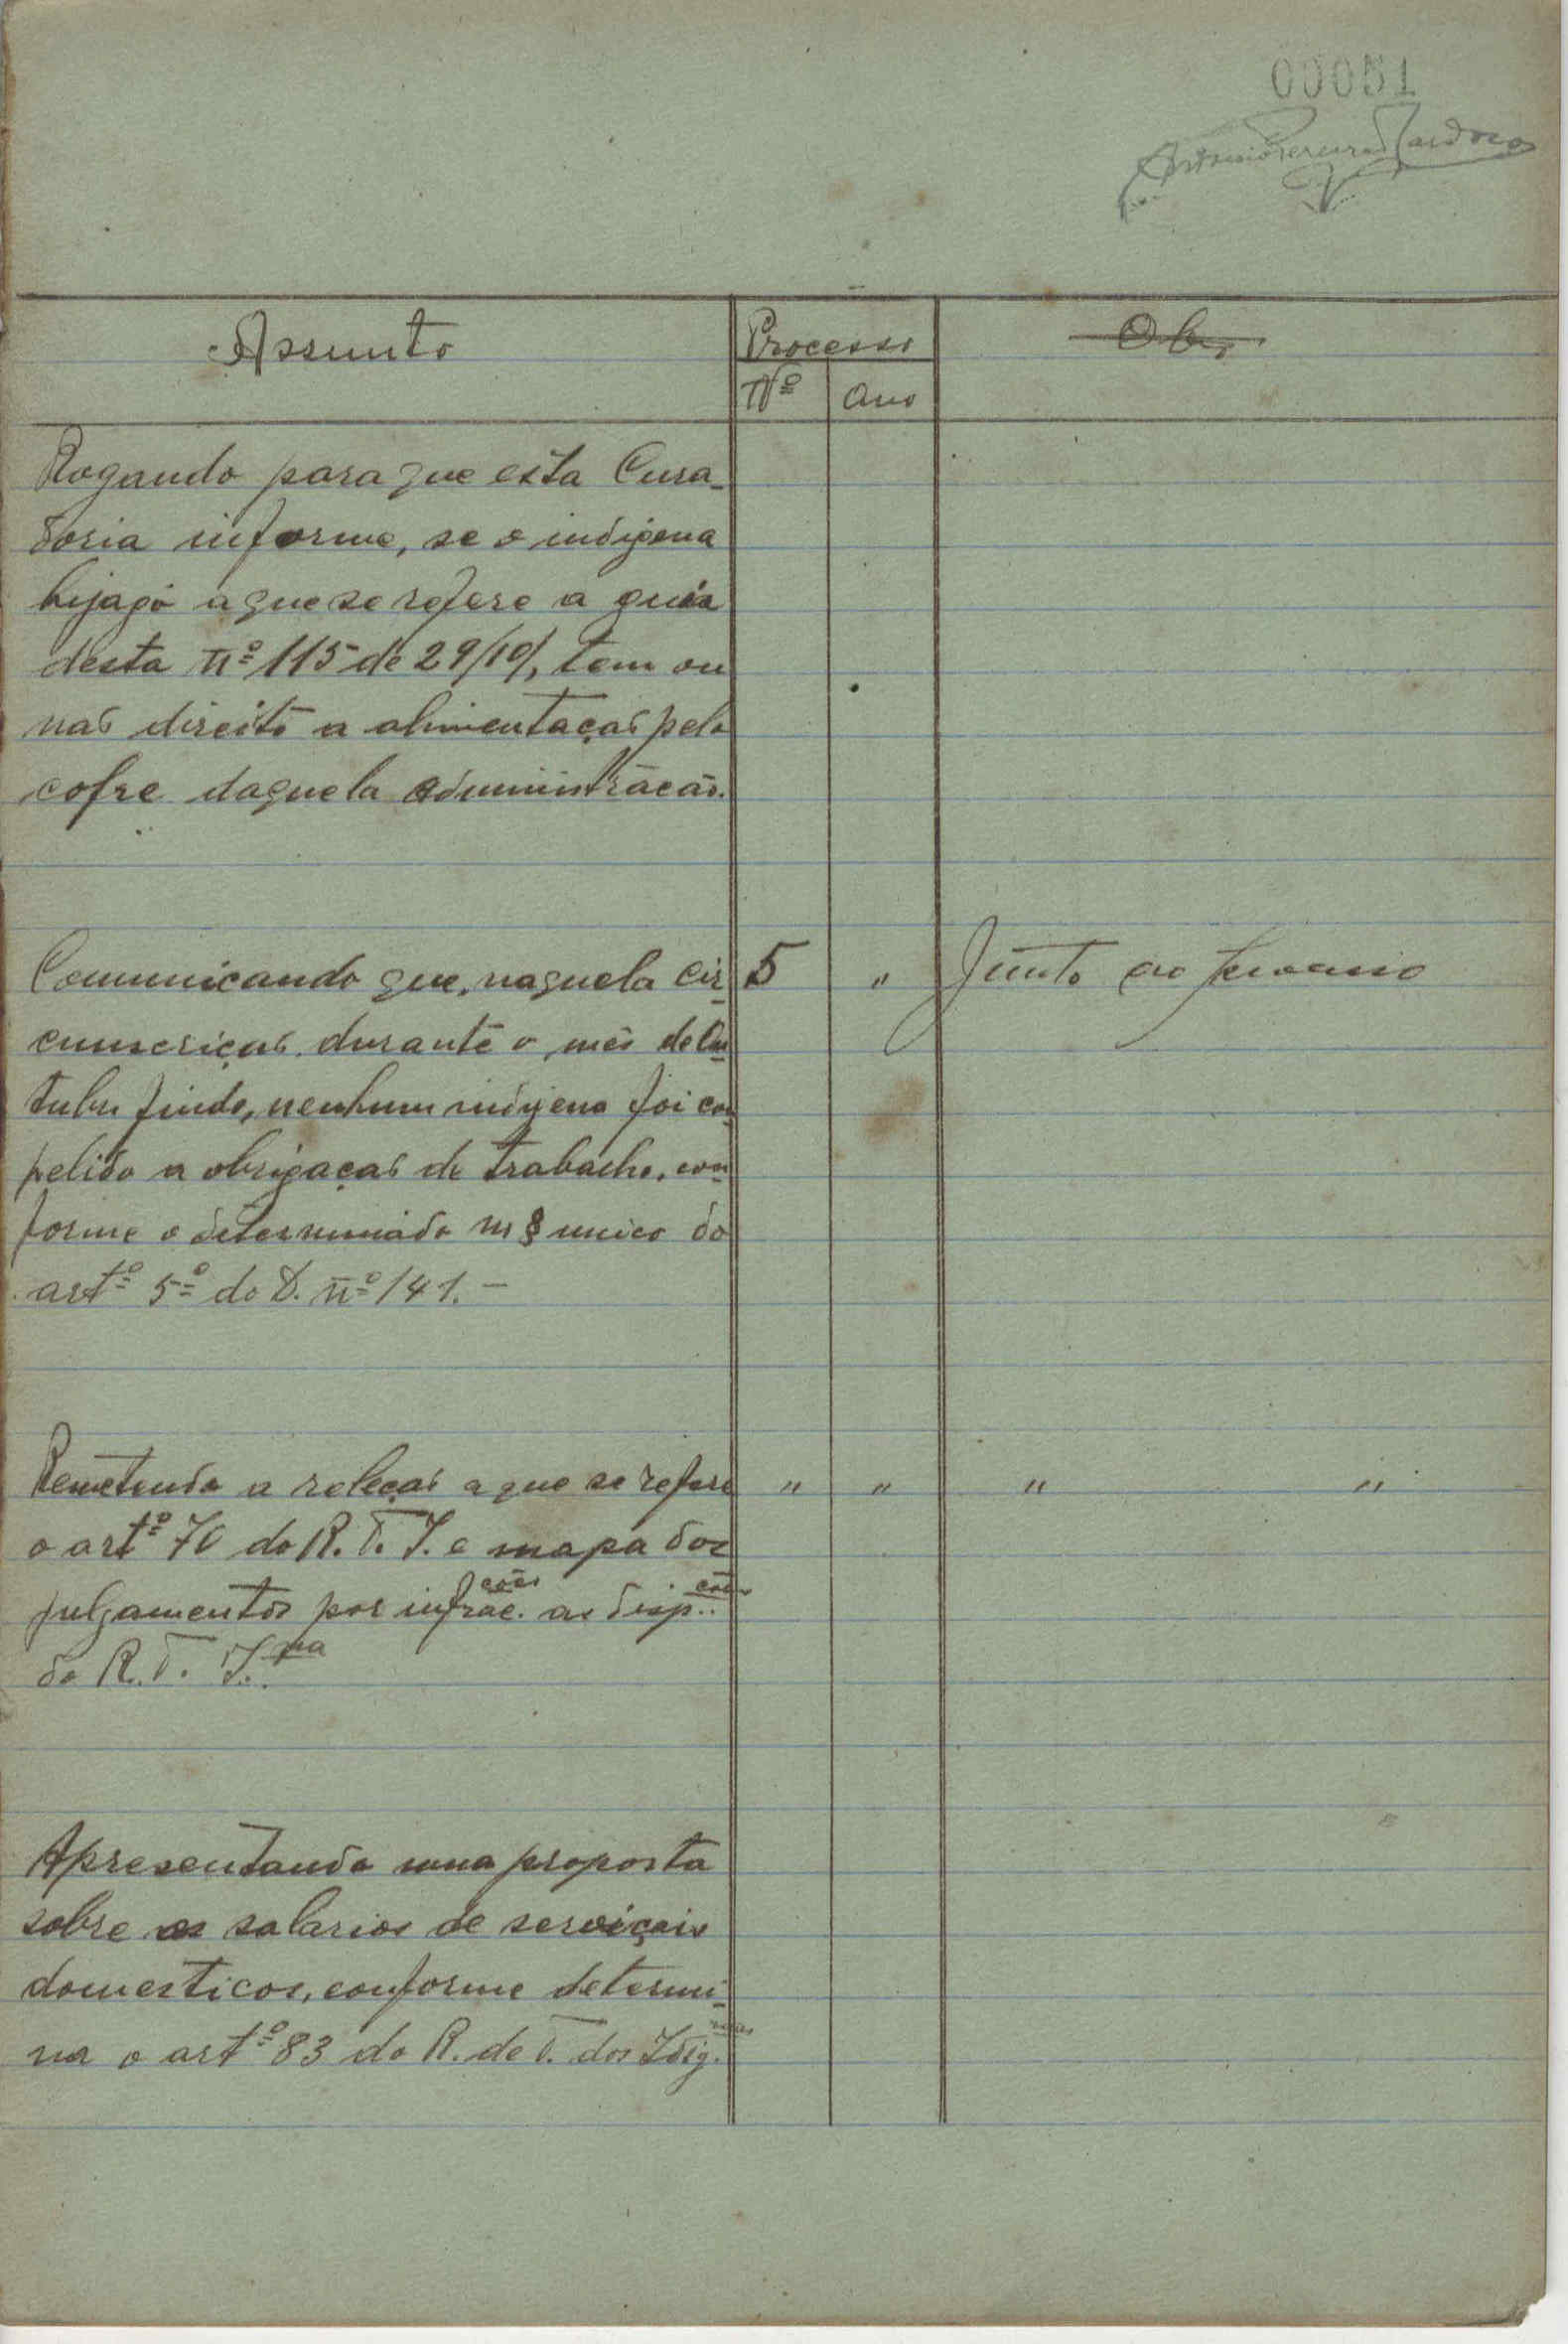 00051
Antonio Pereira Cardoso
Assunto
Processo
Obs.
Nº
Ano
Rogando para que esta Cura-
doria informe, se o indigena
bijagó a que se refere a guia
desta nº 115 de 29/10/, tem ou
não direito a alimentação pelo
cofre daquela administração.
Comunicando que, naquela cir-
5
"
Junto ao processo
cunscrição, durante o mês de Ou-
tubro findo, nenhum indigena foi com-
pelido a obrigação de trabalho, con-
forme o determinado no § unico do
artº 5º do D. nº 141. —
Remetendo a relação a que se refere
"
"
"
"
o artº 70 do R. T. I. e mapa dos
julgamentos por infrac.ções as disp.ções
do R. T. I.na
Apresentando uma proposta
sobre os salarios de serviçais
domesticos, conforme determi-
na o artº 83 do R. de T. dos Idig.nas